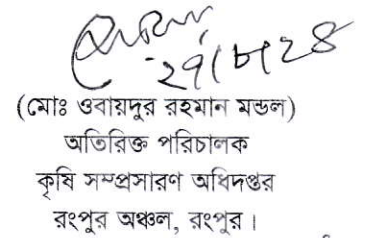 ২৭/৮/২৪
(মোঃ ওবায়দুর রহমান মন্ডল)
অতিরিক্ত পরিচালক
কৃষি সম্প্রসারণ অধিদপ্তর
রংপুর অঞ্চল, রংপুর।